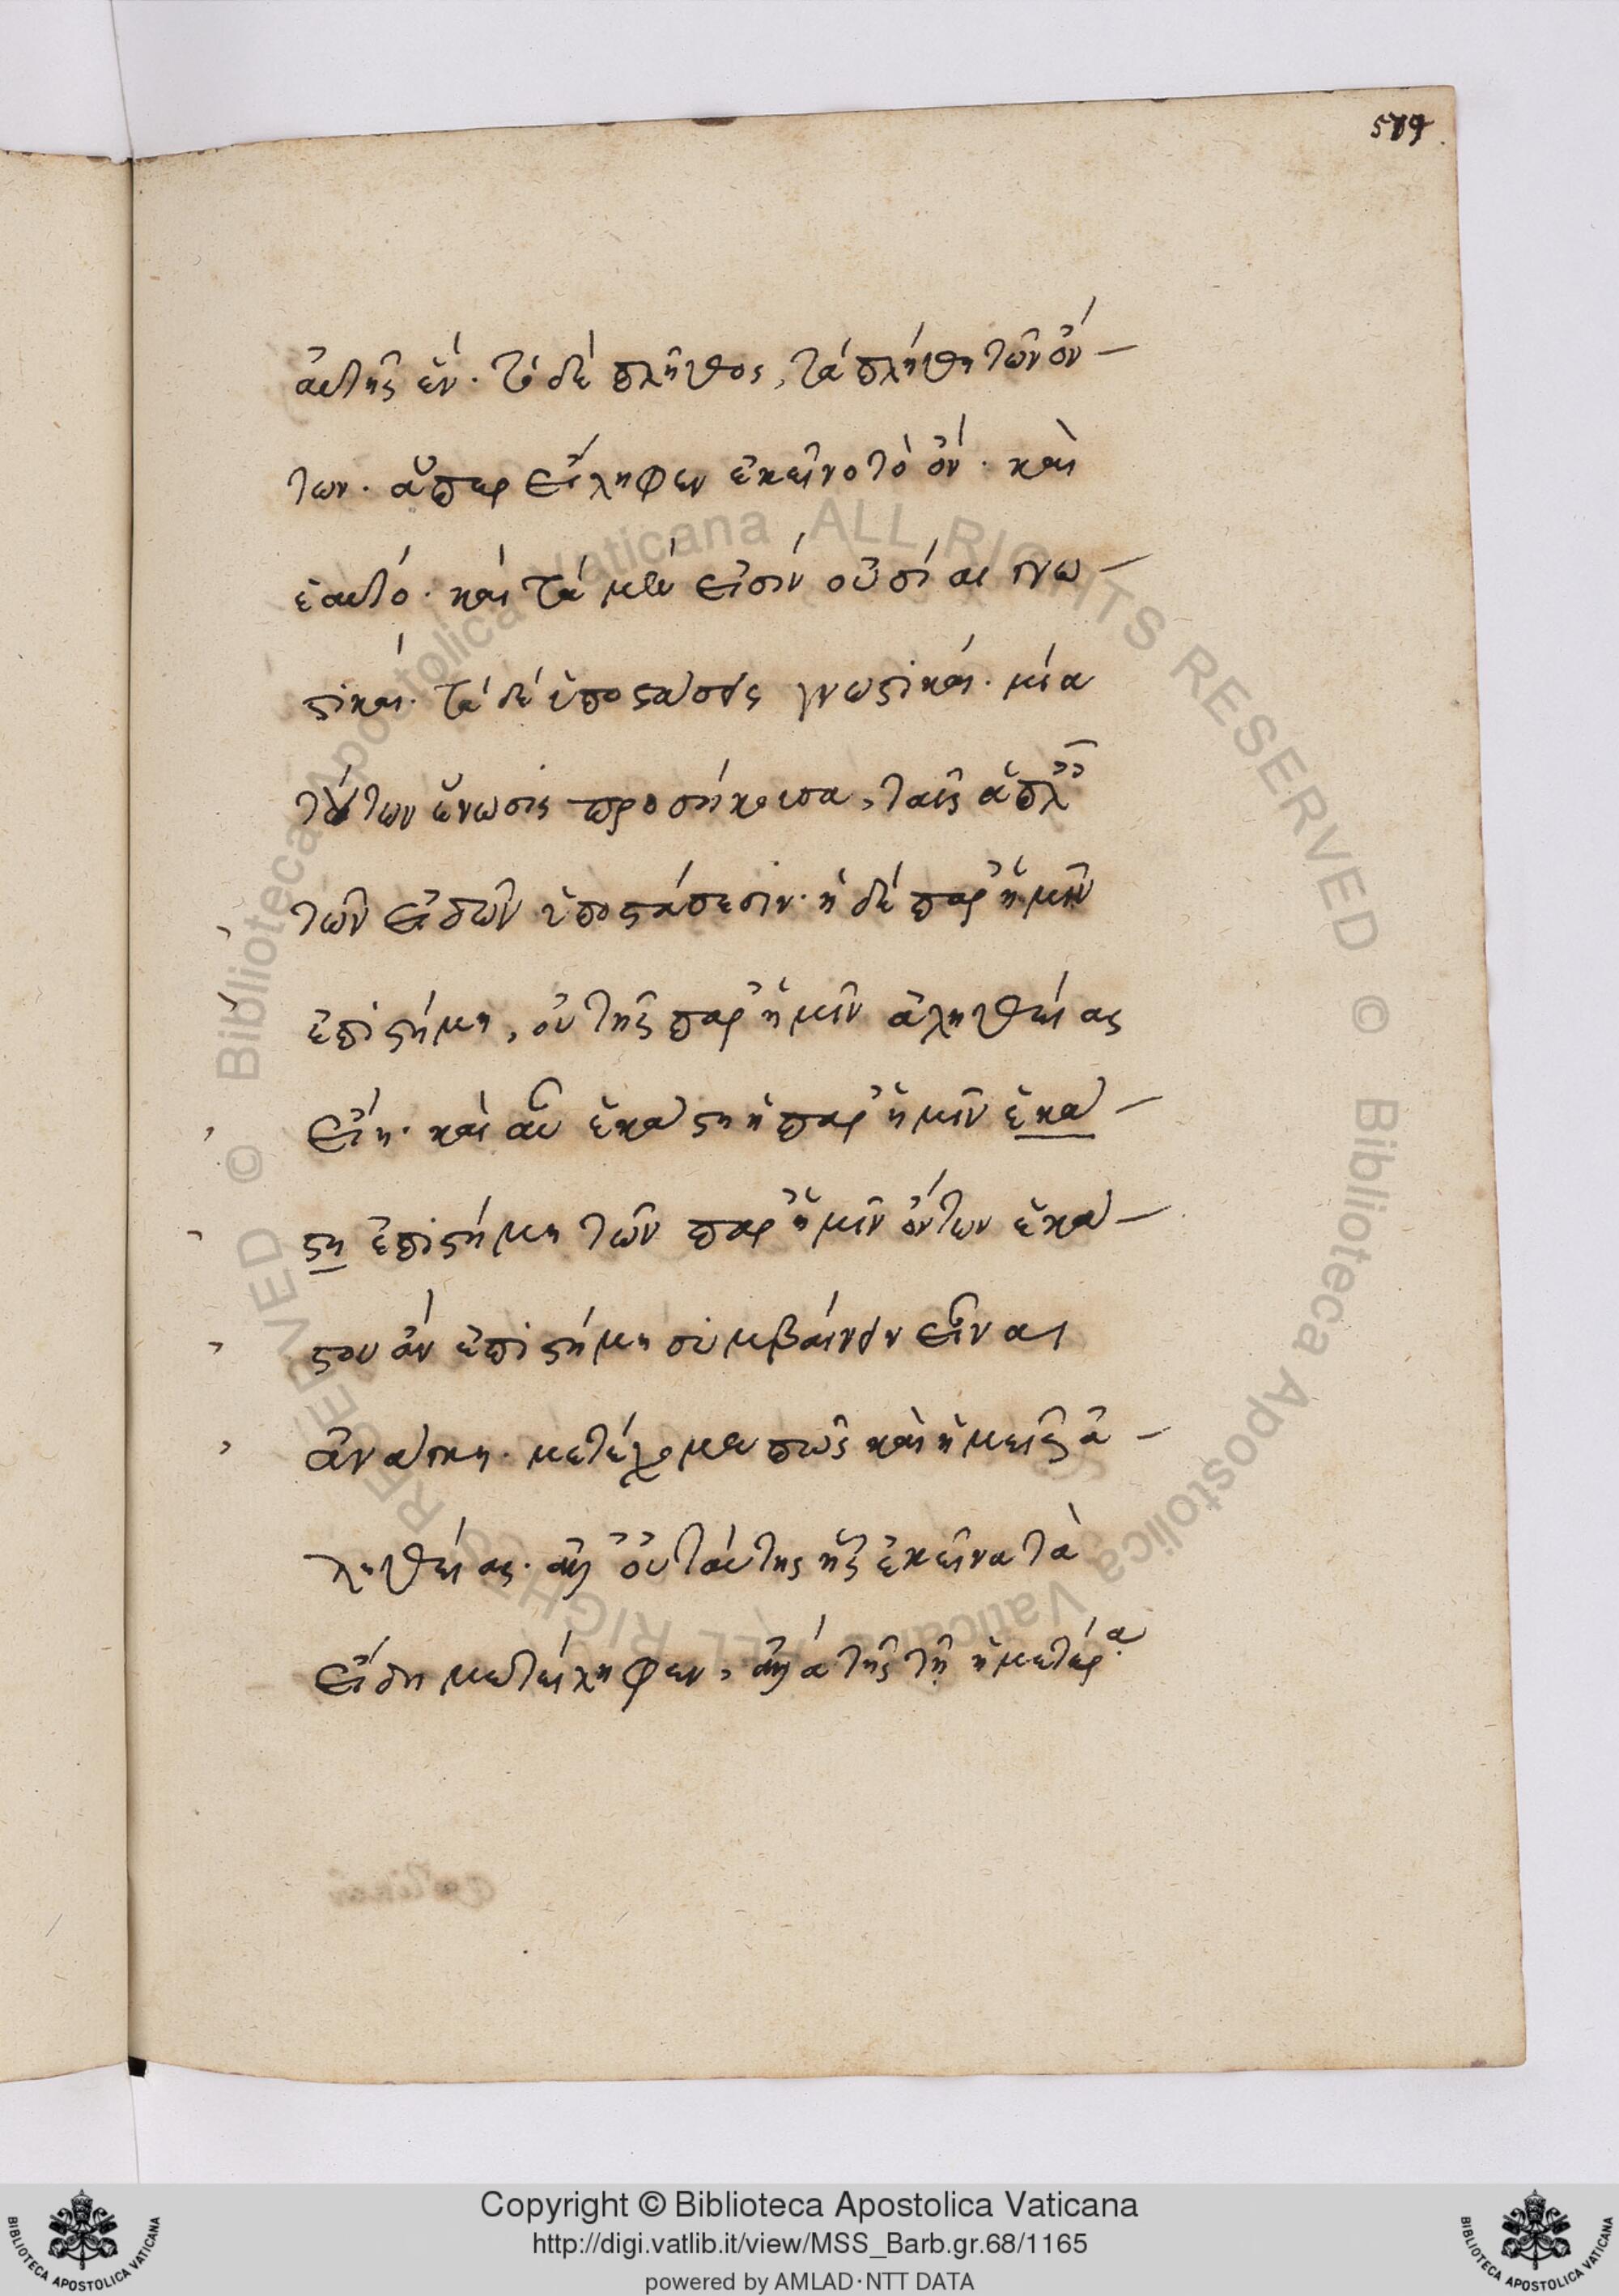 579.
αὐτῆς ἕν. τὸ δὲ πλῆθος, τὰ πλήθη τῶν ὄν-
των. ἅπερ εἴληφεν ἐκεῖνο τὸ ὄν. καὶ
ἑαυτό. καὶ τὰ μέν εἰσιν οὐσίαι γνω-
στικαί. τὰ δὲ ὑποστάσεις γνωστικαί. μία
τούτων ἕνωσις προσήκουσα, ταῖς ἁπλ
τῶν εἰδῶν ὑποστάσεσιν. ἡ δὲ παρ' ἡμῖν
ἐπιστήμη, οὐ τῆς παρ' ἡμῖν ἀληθείας
εἴη. καὶ αὖ ἑκάστη ἡ παρ' ἡμῖν ἑκά-
στη ἐπιστήμη τῶν παρ' ἡμῖν ὄντων ἑκά-
στου ἂν ἐπιστήμη συμβαίνειν εἶναι
ἀνάγκη. μετέχομεν πως καὶ ἡμεῖς ἀ-
ληθείας. ἀλλ' οὐ ταύτης ἧς ἐκεῖνα τὰ
εἴδη μετείληφεν, ἀλλὰ τῆς τῇ ἡμετέρᾳ
Copyright © Biblioteca Apostolica Vaticana
http://digi.vatlib.it/view/MSS_Barb.gr.68/1165
powered by AMLAD·NTT DATA
BIBLIOTECA APOSTOLICA VATICANA
BIBLIOTECA APOSTOLICA VATICANA
© Biblioteca Apostolica Vaticana ALL RIGHTS RESERVED
© Biblioteca Apostolica Vaticana ALL RIGHTS RESERVED